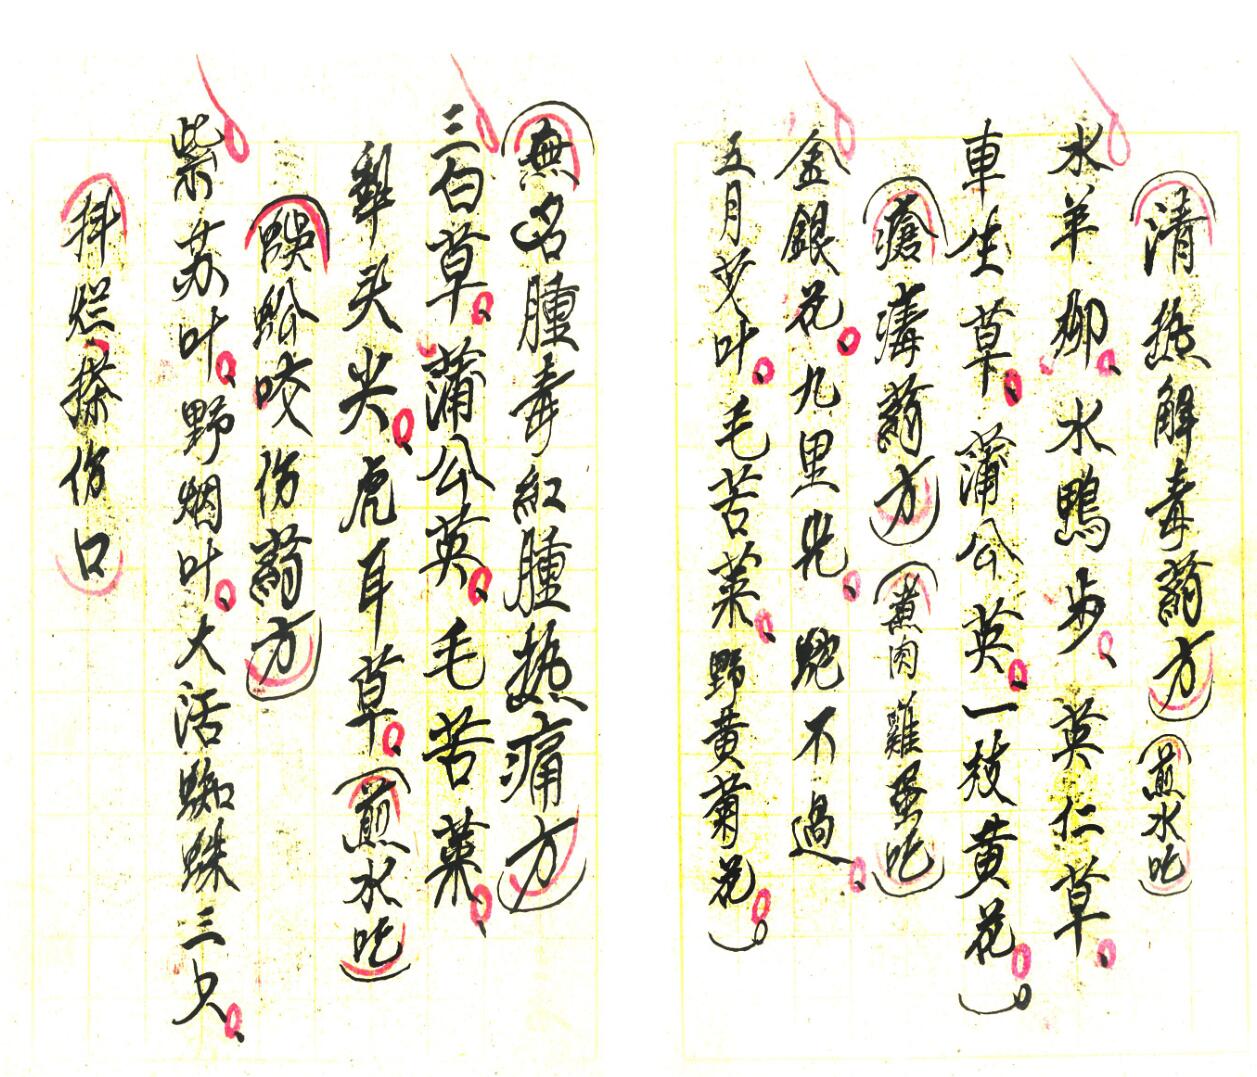 清热解毒药方 煎水吃
水羊柳、水鸭步、英仁草、
車生草、蒲公英、一枝黄花
瘡毒药方 煮肉雞蛋吃
金銀花、九里光、蛇不過、
五月艾叶、毛苦菜、野黄菊花
無名腫毒紅腫热痛方
三白草、蒲公英、毛苦菜、
犁头尖、虎耳草、煎水吃
蜈蚣咬伤药方
紫苏叶、野烟叶、大活蜘蛛三只、
抖烂搽伤口